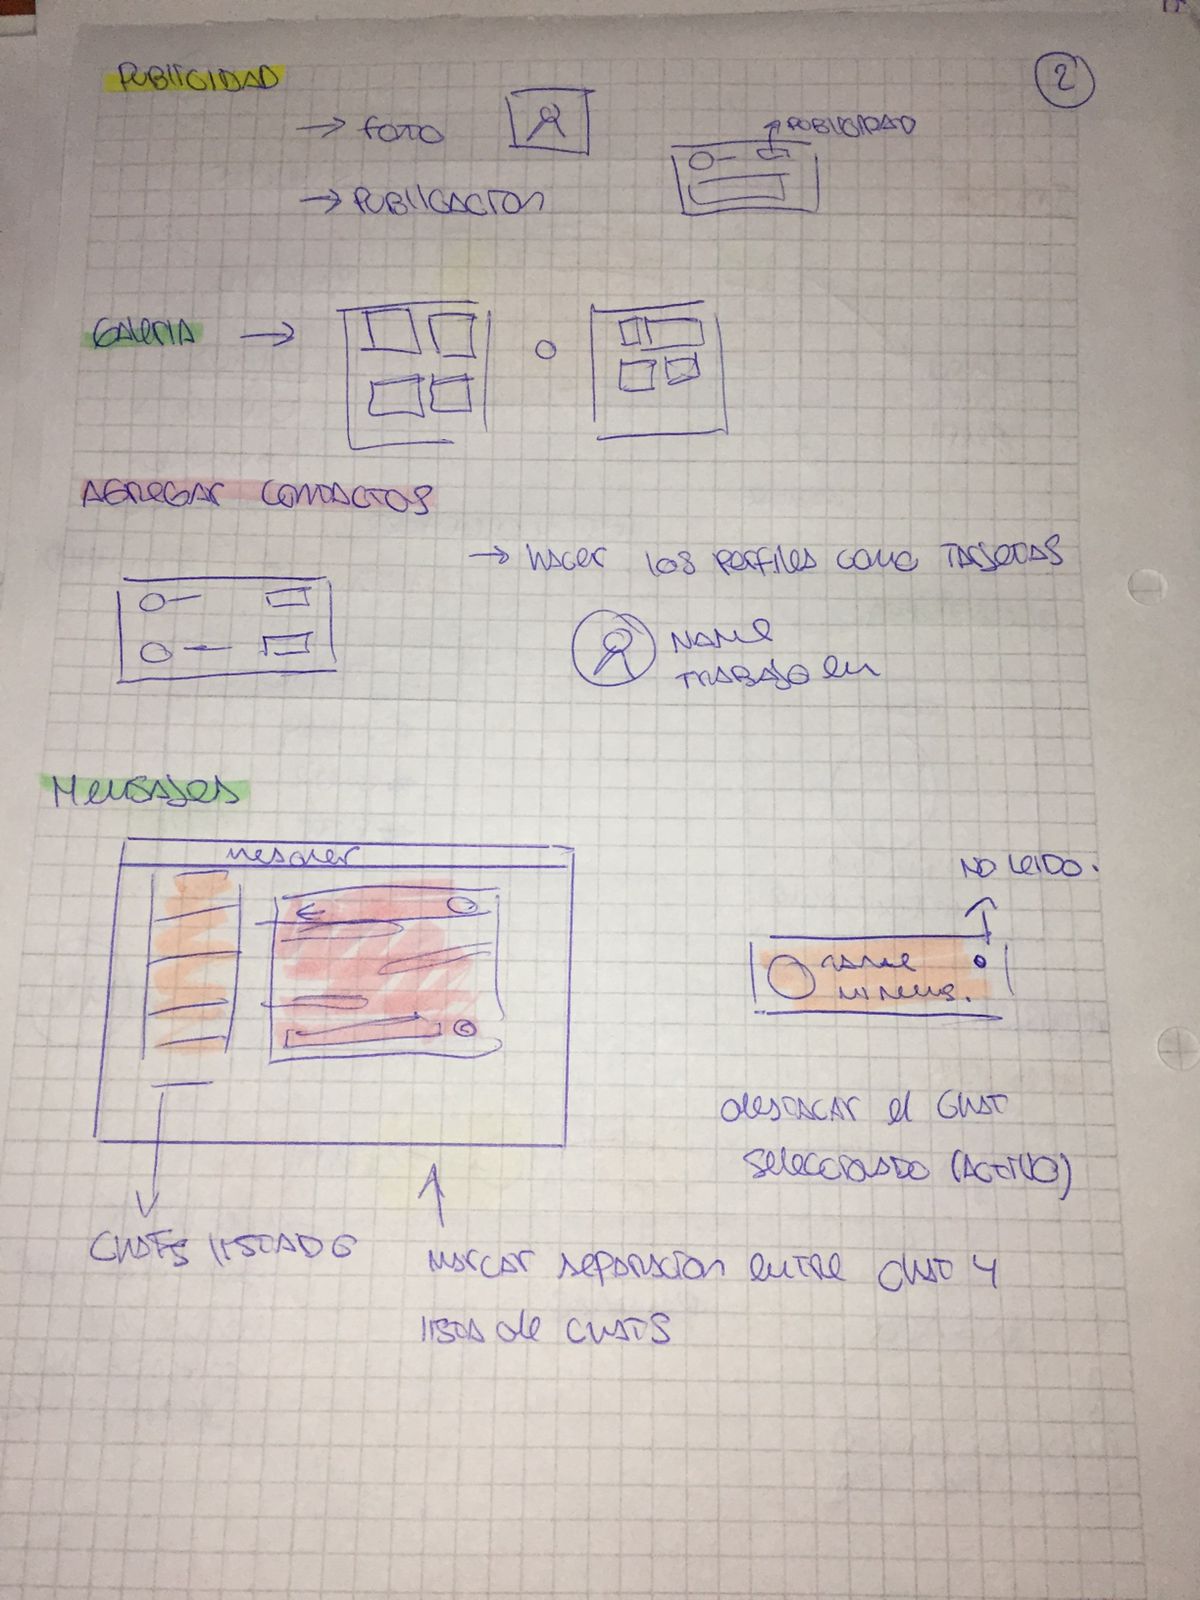 2
PUBLICIDAD
→ FOTO
PUBLICIDAD
→ PUBLICACION
GALERIA →
o
AGREGAR CONTACTOS
→ HACER LOS PERFILES COMO TARJETAS
NAME
TRABAJO EN
MENSAJES
NO LEIDO.
NAME
DESTACAR EL CHAT
SELECCIONADO (ACTIVO)
CHATS LISTADO
MARCAR SEPARACION ENTRE CHAT Y
LISTA DE CHATS